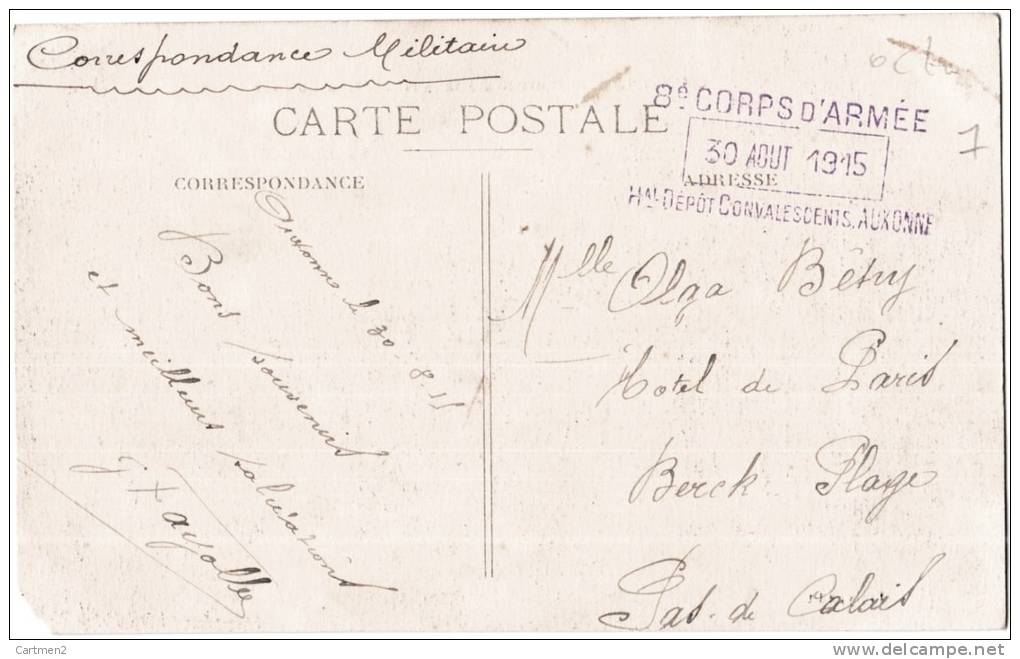 Correspondance Militaire
CARTE POSTALE
8e CORPS D'ARMÉE
30 AOUT 1915
Hal DÉPÔT CONVALESCENTS. AUXONNE
7
CORRESPONDANCE
ADRESSE
Auxonne le 30-8-15
Bons souvenirs
et meilleurs salutations
J Fayolle
Mlle Olga Bétry
Hotel de Paris
Berck Plage
Pas-de Calais
Cartmen2
delcampe.net